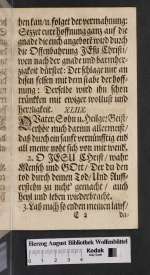 hen kan/ u. folget der vermahnung:
Setzet eure hoffnung gantz auf die
gnade die euch angebotē wird durch
die Offenbahrung JEsu Christi/
wen nach der gnade und barmher-
zigkeit dürstet: Der schlage mit an
disen felsen mit dem stabe der hoff-
nung: Derselbe wird ihn schon
trüncken mit ewiger wollust und
herzligkeit.
XLIIX.
O Vater/ Sohn u. Heilger Geist/
verleihe mich darum allermeist/
das durch ein sanft vernünftig end
all mein noht sich von mir wend.
2. O JESU Christ/ wahr
Mensch und GOtt/ Der du den
tod durch deinen Tod/ Und Auff-
erstehn zu nicht gemacht/ auch
heyl und leben wiederbracht.
3. Laß mich so enden meinen lauf/
C 2
da-
Herzog August Bibliothek Wolfenbüttel
Kodak